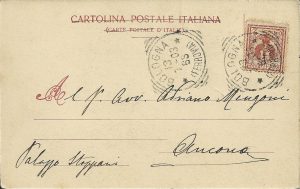 CARTOLINA POSTALE ITALIANA
(CARTE POSTALE D'ITALIE)
BOLOGNA
BOLOGNA
Al Sig. Avv. Adriano Mengoni
Ancona
Palazzo Stoppani